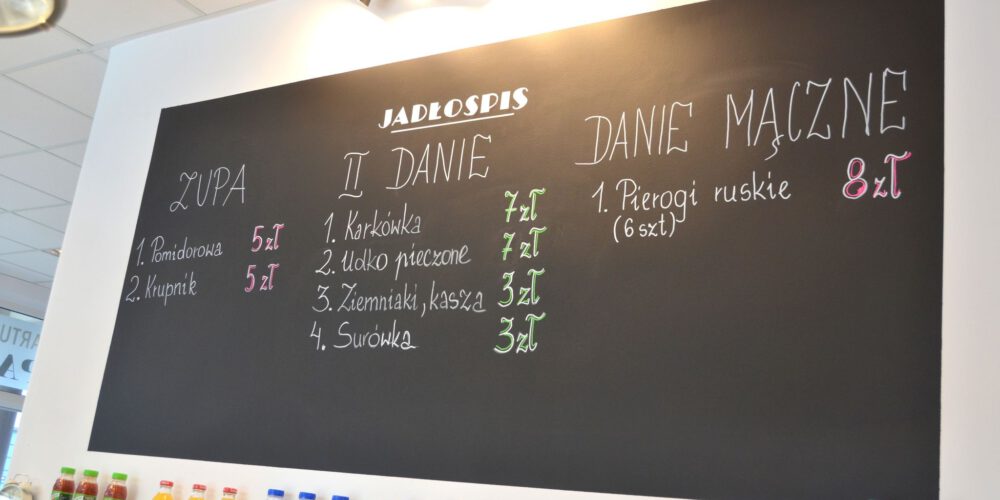 JADŁOSPIS
ZUPA
1. Pomidorowa 5 zł
2. Krupnik 5 zł
II DANIE
1. Karkówka 7 zł
2. Udko pieczone 7 zł
3. Ziemniaki, kasza 3 zł
4. Surówka 3 zł
DANIE MĄCZNE
1. Pierogi ruskie 8 zł
(6 szt)
ARTU